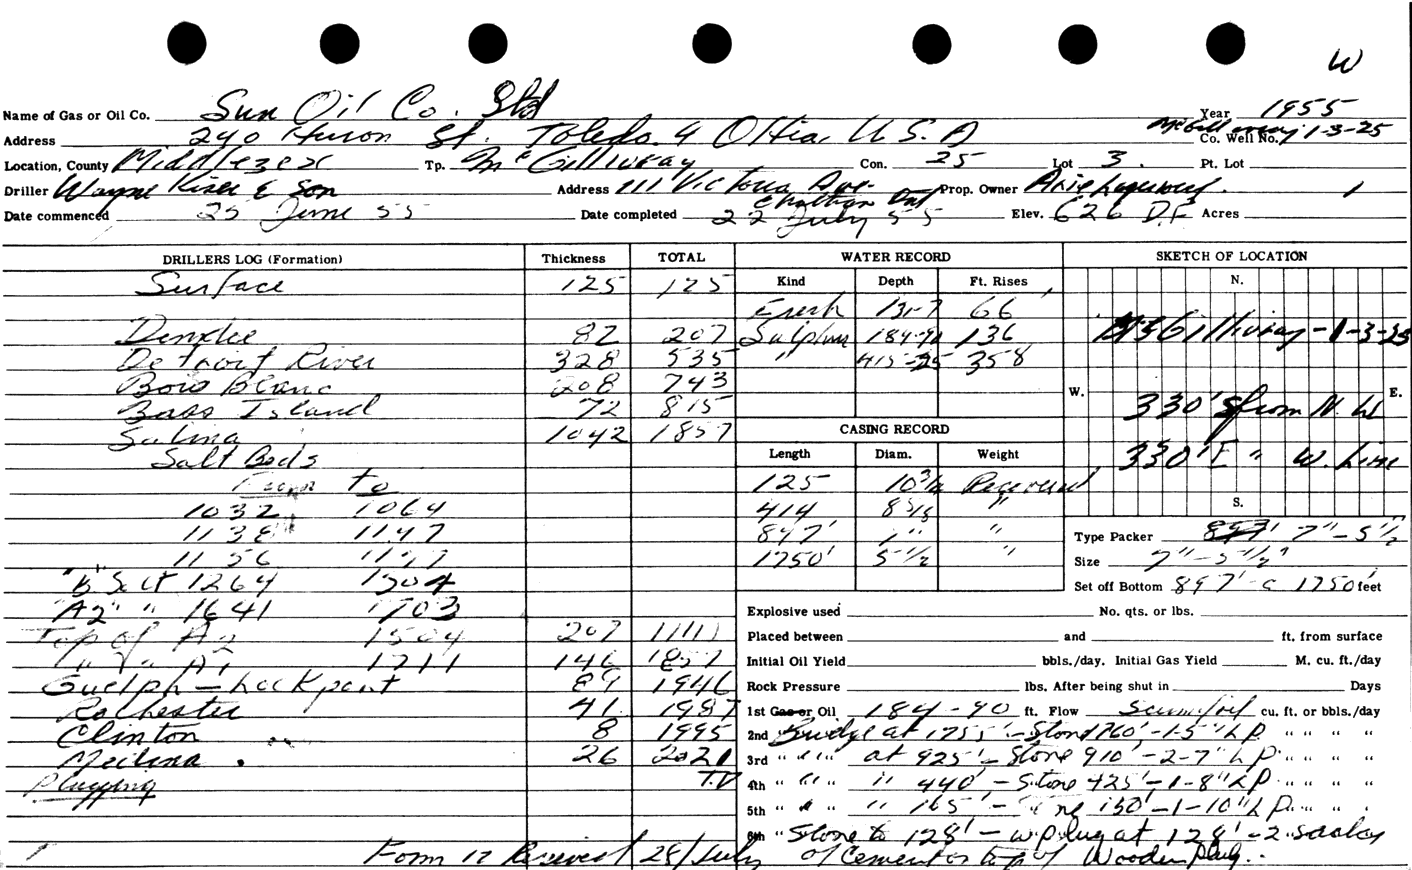 W
Name of Gas or Oil Co. Sun Oil Co. Ltd Year 1955
Address 240 Huron St. Toledo 4 Ohio, U.S.A Co. Well No. 1-3-25
Location, County Middlesex Tp. McGillivray Con. 25 Lot 3. Pt. Lot
Driller Wayne Kiser & Son Address 111 Victoria Ave. Chatham Ont Prop. Owner 1
Date commenced 25 June 55 Date completed 22 July 55 Elev. 626 D.F Acres
DRILLERS LOG (Formation) Thickness TOTAL WATER RECORD SKETCH OF LOCATION
Surface 125 125 Kind Depth Ft. Rises N.
Fresh 131-7 66
Dundee 82 207 Sulphur 184-90 136 McGillivray-1-3-25
Detroit River 328 535 " 415-25 358
Bois Blanc 208 743 W. E.
Bass Island 72 815 330' S from N. W
Salina 1042 1857 CASING RECORD
Salt Beds Length Diam. Weight 330' E " W. Line
From to 125 10 3/4 Recovered
1032 1064 414 8 5/8 " S.
1138 1147 847' 7" " Type Packer 7"-5 1/2
1156 1177 1750' 5 1/2 " Size 7"-5 1/2"
"B" Salt 1264 1304 Set off Bottom 897'-C 1750' feet
"A2" " 1641 1703 Explosive used No. qts. or lbs.
Top of A2 1504 207 1711 Placed between and ft. from surface
" " A1 1711 146 1857 Initial Oil Yield bbls./day. Initial Gas Yield M. cu. ft./day
Guelph-Lockport 89 1946 Rock Pressure lbs. After being shut in Days
Rochester 41 1987 1st Gas or Oil 184-90 ft. Flow Scum/oil cu. ft. or bbls./day
Clinton 8 1995 2nd Bridge at 1755'-Stone 1760'-1-5" LP " " " "
Medina. 26 2021 3rd " " " at 925'-Stone 910'-2-7" LP " " " "
Plugging T.D 4th " " " " 440'-Stone 425'-1-8" LP " " " "
5th " " " " 165'-Stone 150'-1-10" LP " " " "
6th " Stone to 128'-w plug at 128'-2 sacks
Form 17 Received 28/July of Cement on top of Wooden plug.